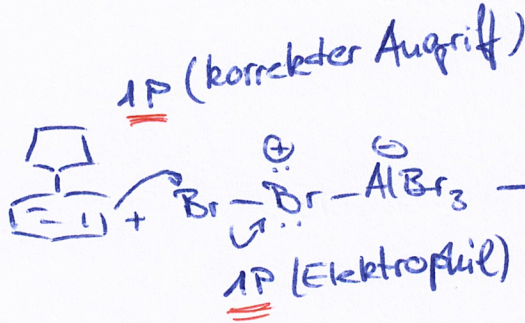 1P (korrekter Angriff)
+ Br – Br⊕ – AlBr₃⊖ –
1P (Elektrophil)